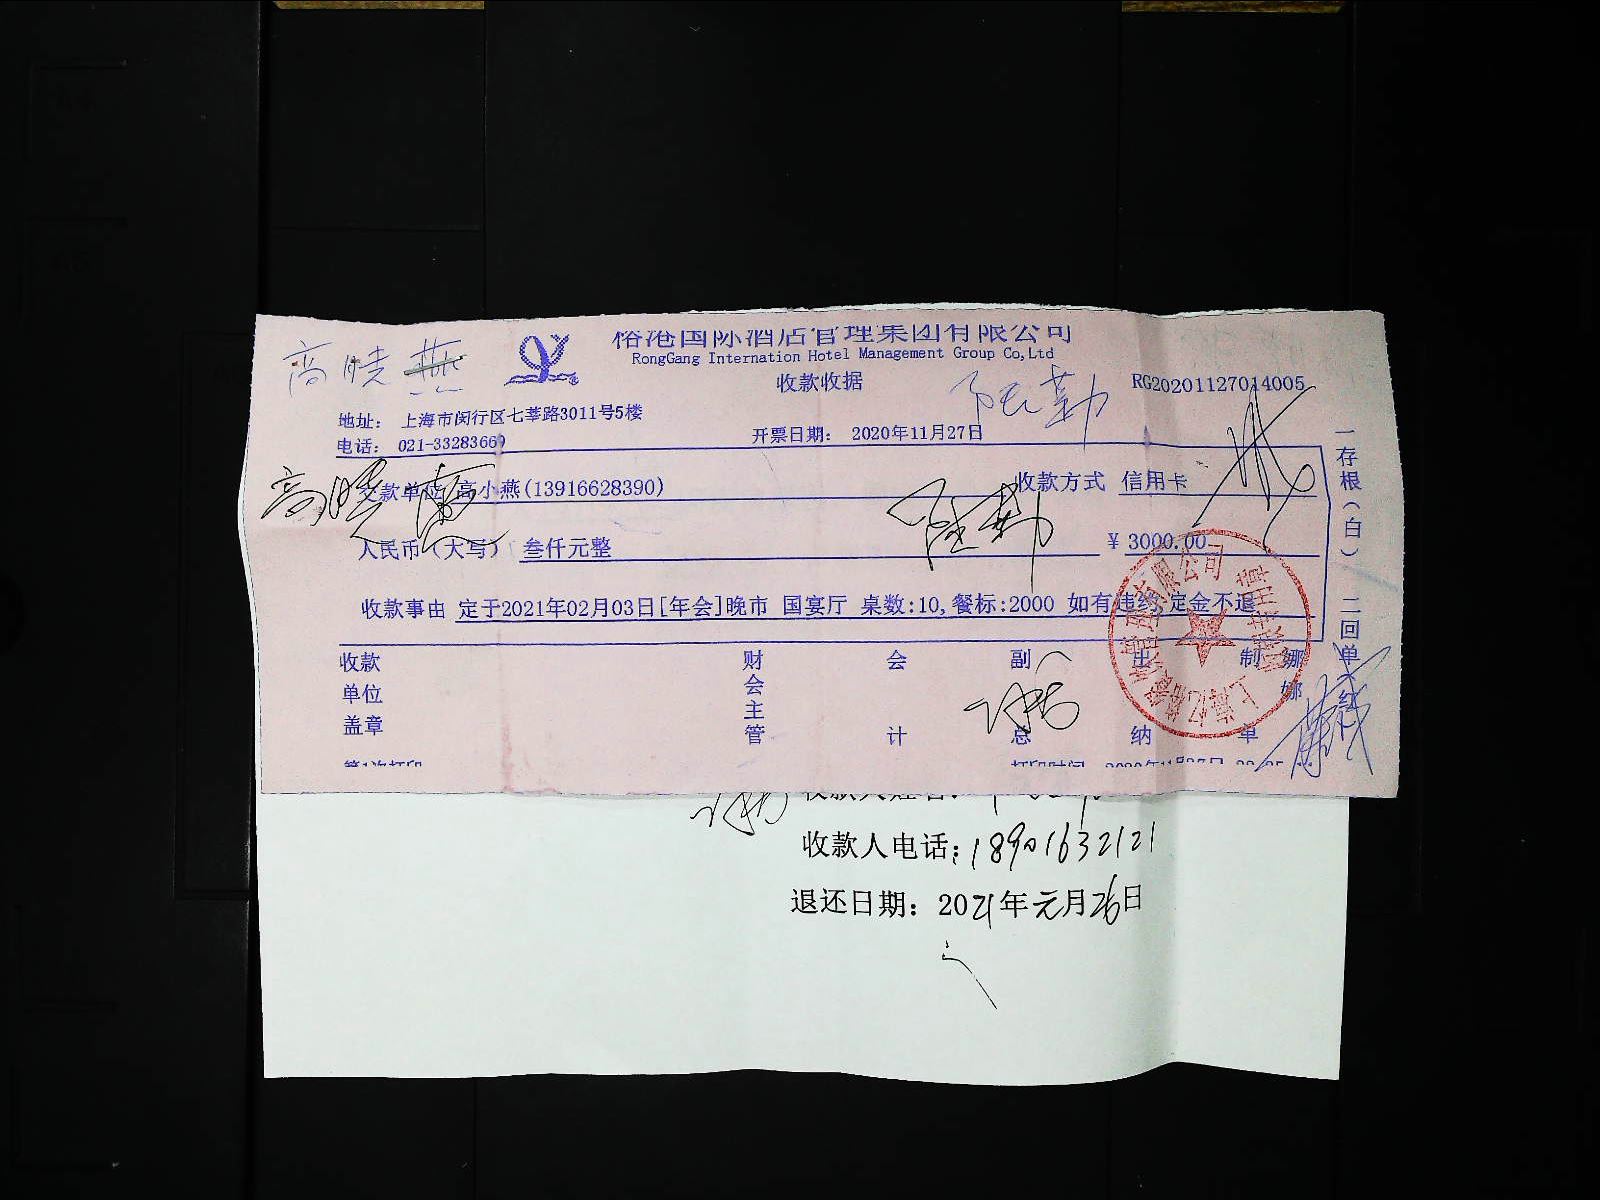 高晓燕
榕港国际酒店管理集团有限公司
RongGang Internation Hotel Management Group Co,Ltd
收款收据
RG20201127014005
地址: 上海市闵行区七莘路3011号5楼
电话: 021-33283669
开票日期: 2020年11月27日
交款单位 高小燕(13916628390)
收款方式 信用卡
高晓燕
人民币(大写) 叁仟元整
¥ 3000.00
收款事由 定于2021年02月03日[年会]晚市 国宴厅 桌数:10,餐标:2000 如有违约,定金不退
收款单位盖章
财会主管
会计
副总
出纳
制单
娜娜
一存根(白) 二回单(红)
第1次打印
打印时间
收款人姓名:
收款人电话:18901632121
退还日期: 2021年元月26日